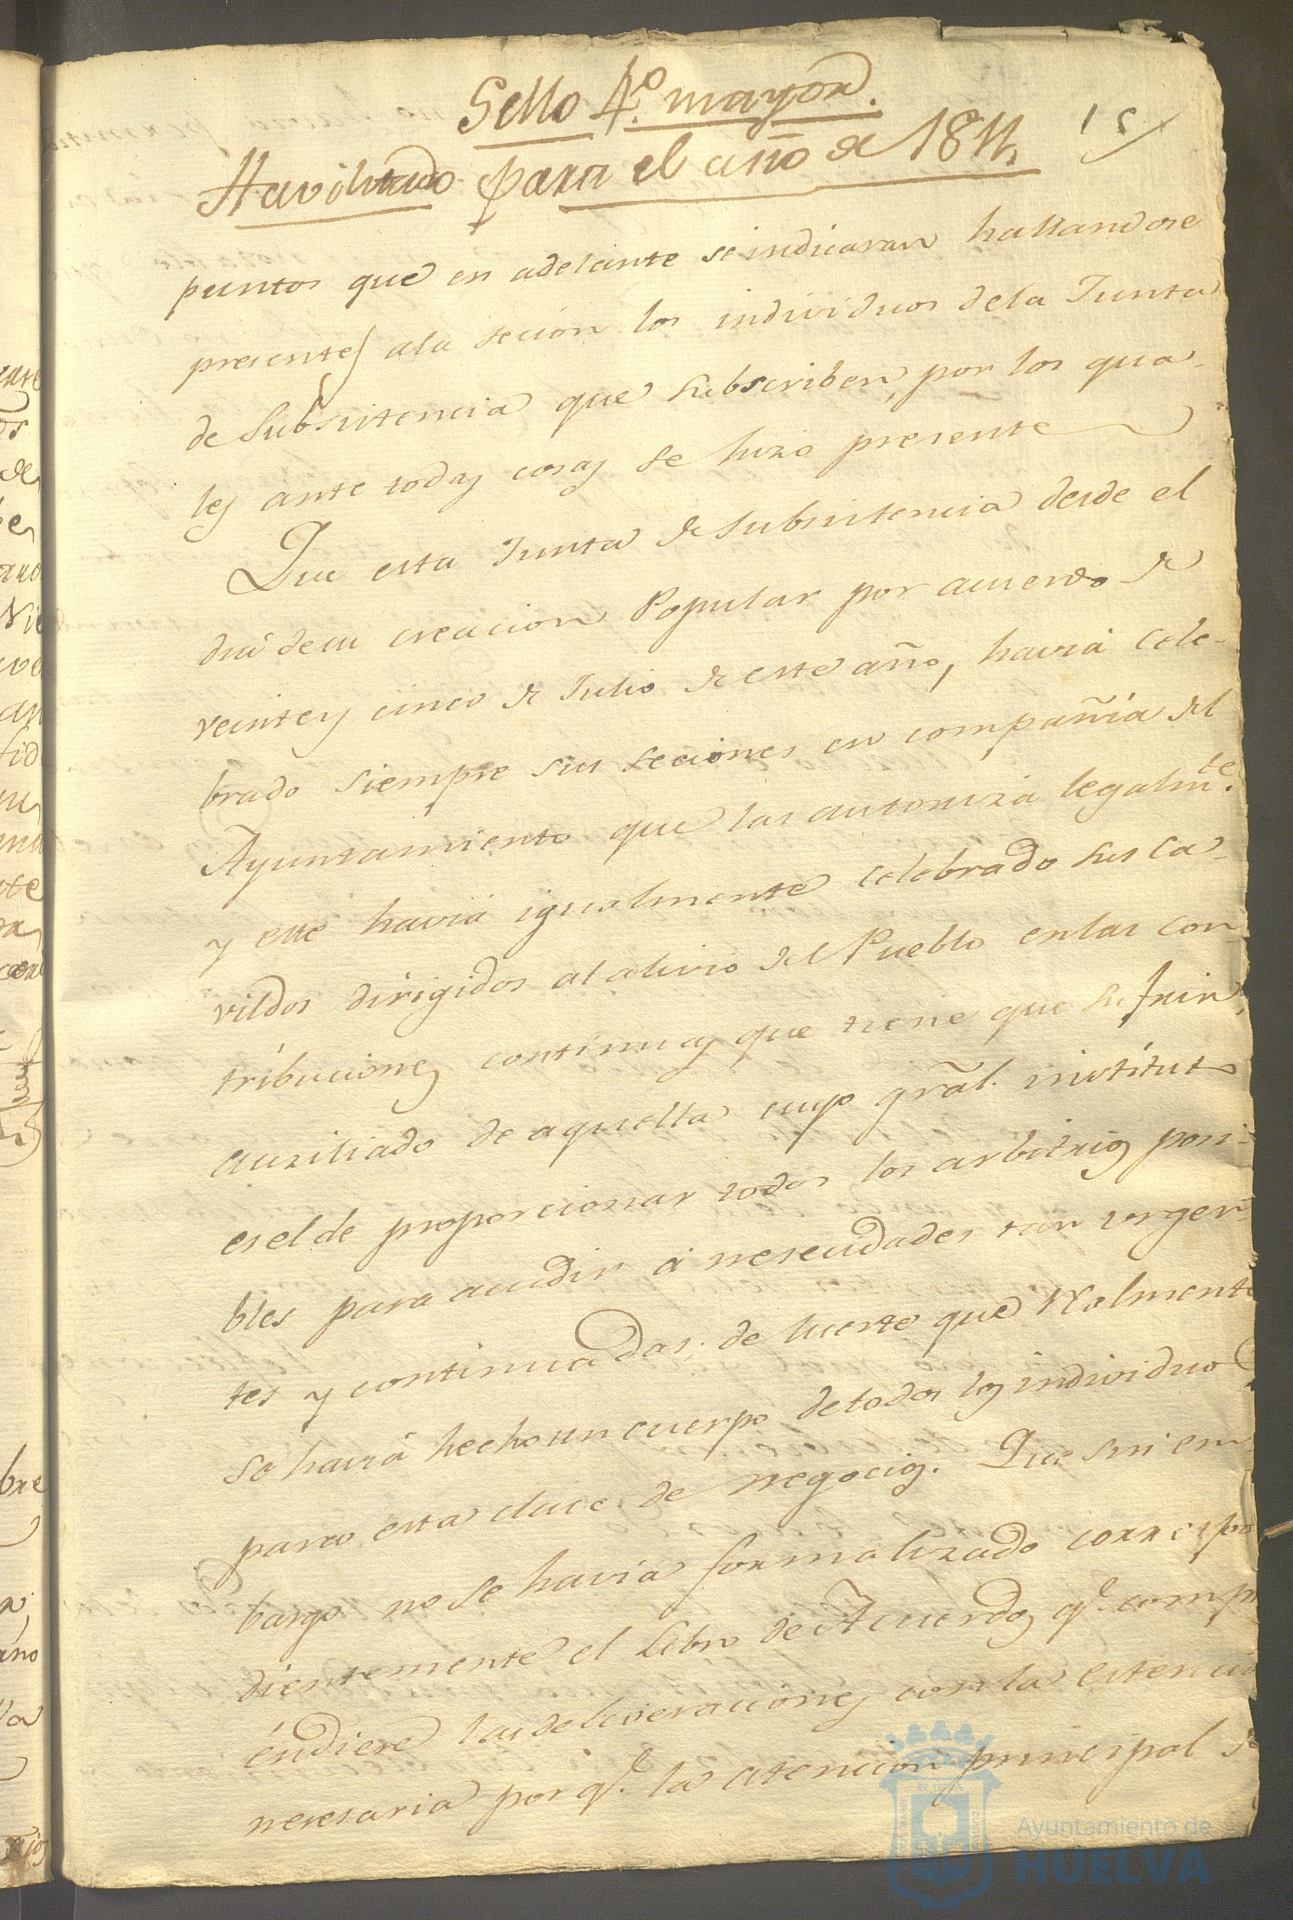 Sello 4.º mayor.
15
Havilitado para el año de 1811,
puntos que en adelante se indicaran hallandose
presentes ala seción los individuos dela Junta
de Subsistencia que subscriben, por los qua-
les ante todas cosas se hizo presente
Que esta Junta de subsistencia desde el
dia desu creacion Popular por acuerdo de
veintey cinco de Julio de este año, havia cele-
brado siempre sus seciones en compañia del
Ayuntamiento que las autoriza legalm.te
y este havia igualmente celebrado sus Ca-
vildos dirigidos al alivio del Pueblo enlas con
tribuciones continuas que tiene que sufrir,
auxiliado de aquella cuyo gral. instituto
esel de proporcionar todos los arbitrios posi-
bles para acudir á necesidades tan urgen-
tes y continuadas; de suerte que realmente
se havia hecho un cuerpo detodos los individuos
para esta clase de negocios. Que sin em
bargo no se havia formalizado correspon
dientemente el Libro de Acuerdos q.e comp
éndiese las deliveraciones con la estenció
necesaria por q.e la atencion principal de
Ayuntamiento de
HUELVA